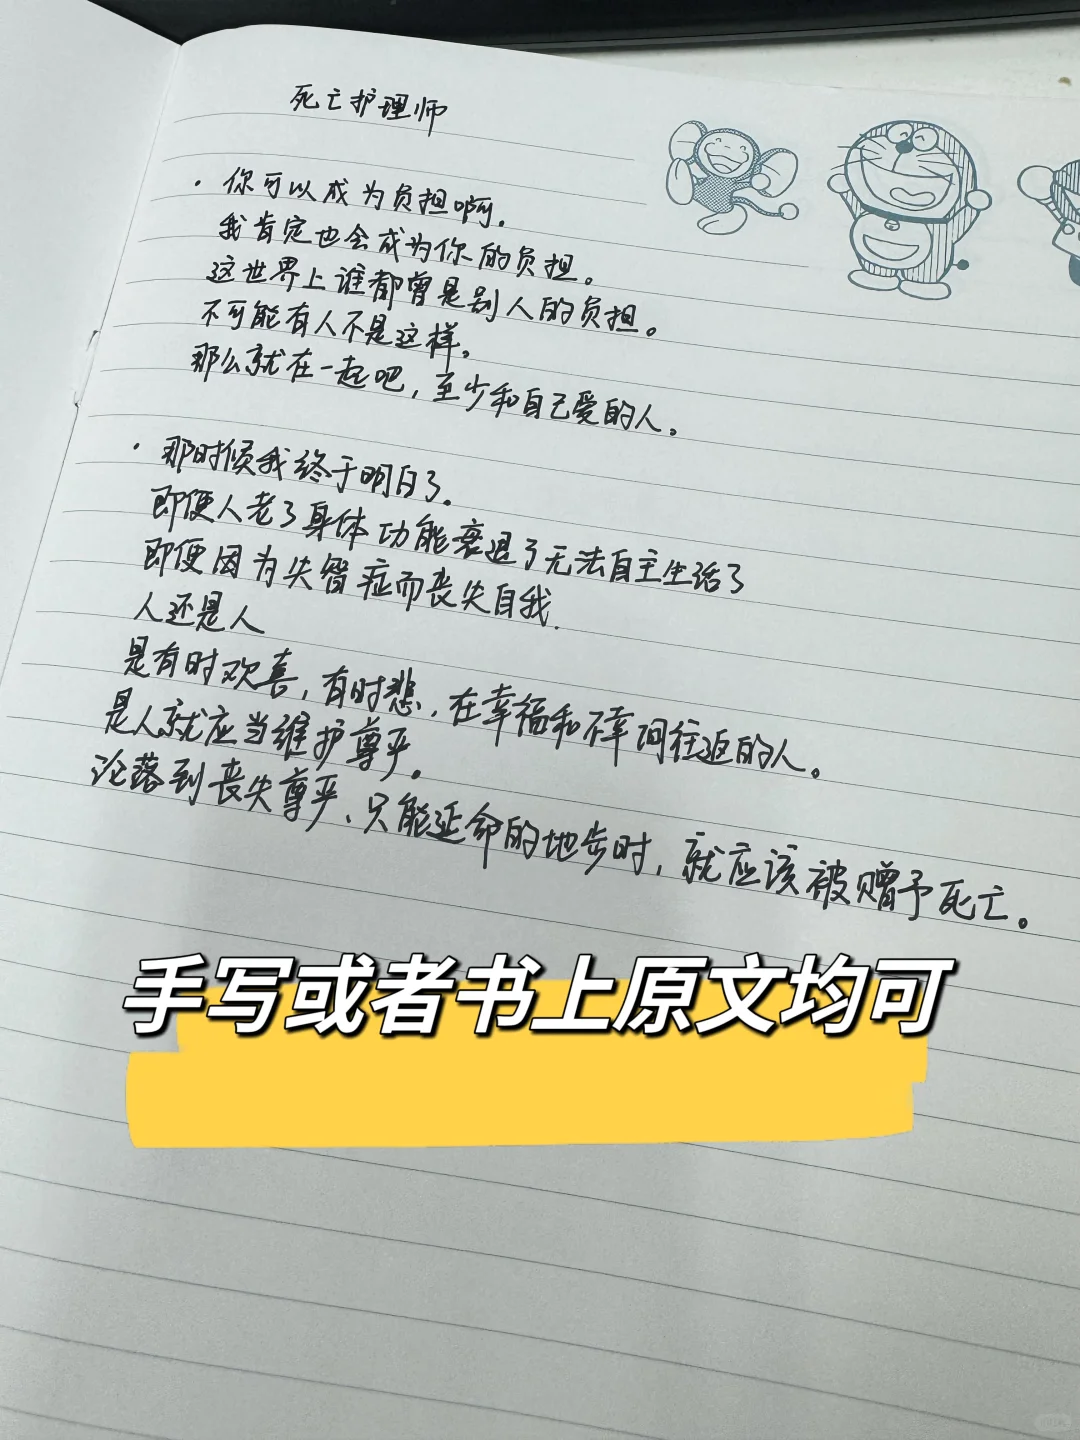 死亡护理师
·你可以成为负担啊。
我肯定也会成为你的负担。
这世界上谁都曾是别人的负担。
不可能有人不是这样。
那么就在一起吧，至少和自己爱的人。
·那时候我终于明白了。
即便人老了身体功能衰退了无法自主生活了
即便因为失智症而丧失自我.
人还是人
是有时欢喜，有时悲，在幸福和不幸间往返的人。
是人就应当维护尊严。
沦落到丧失尊严、只能延命的地步时，就应该被赠予死亡。
手写或者书上原文均可